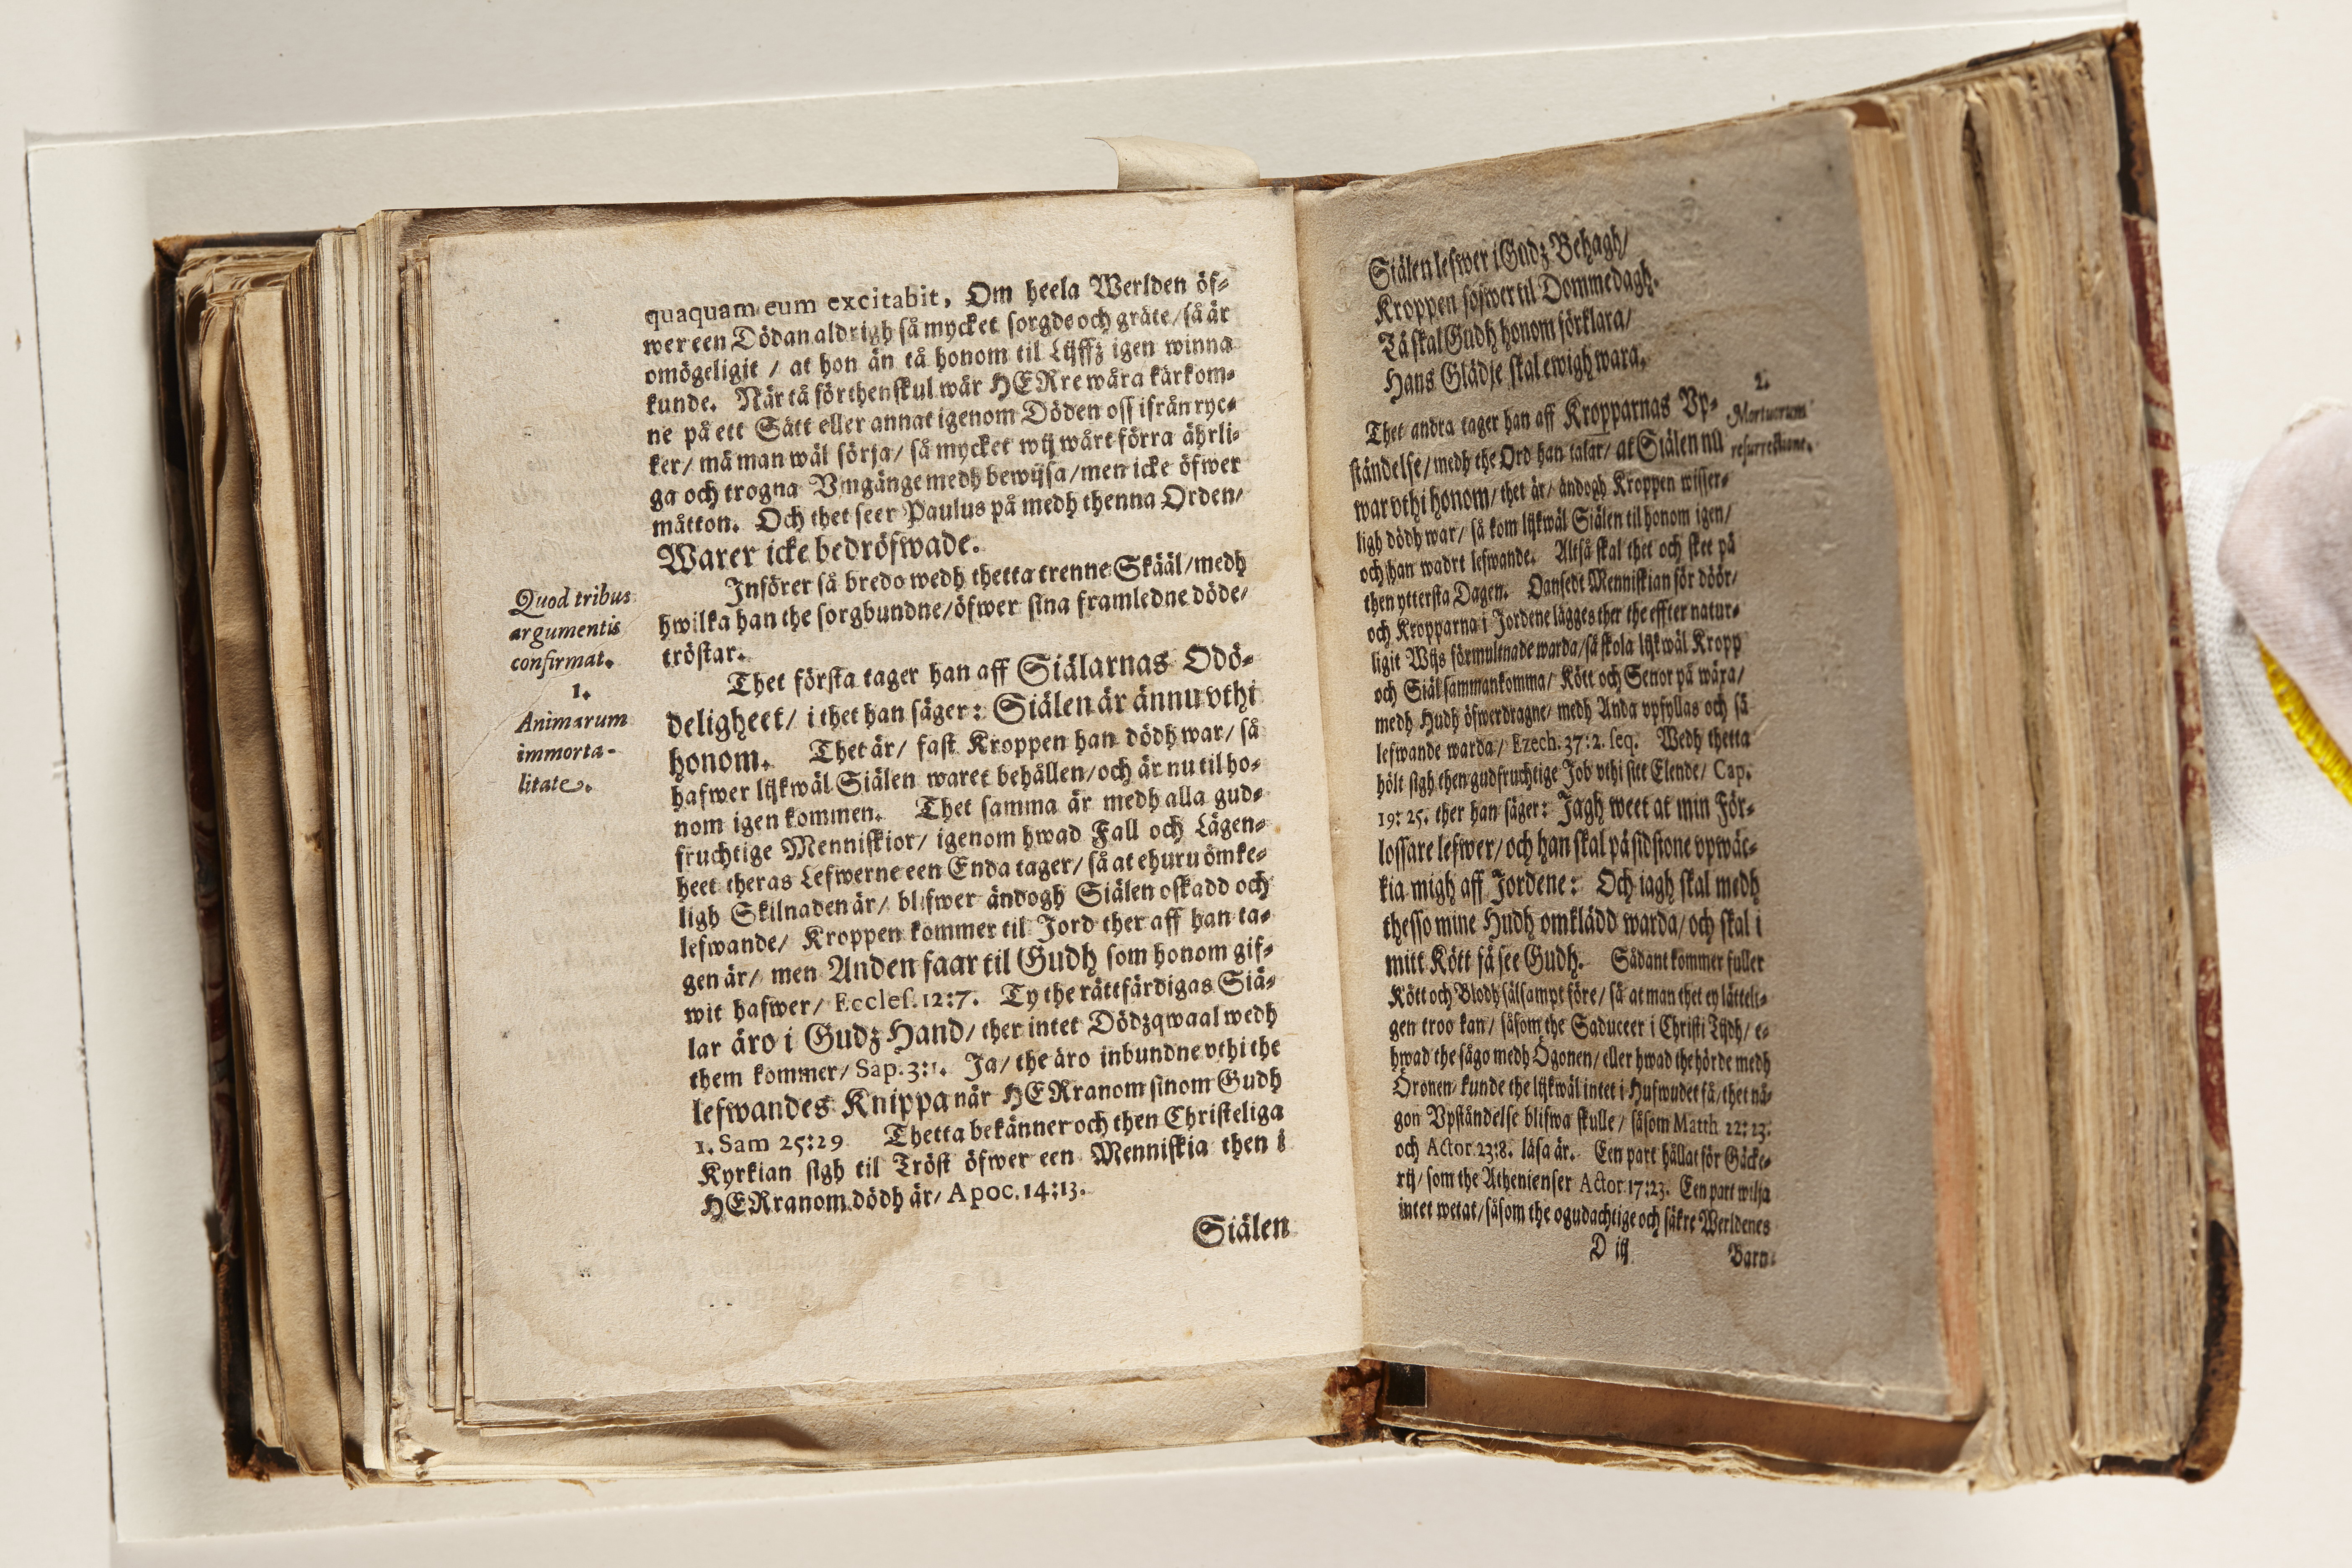 quaquam eum excitabit, Om heela Werlden öf-
wer een Dödan aldrigh så mycket sorgde och gräte/ så är
omögeligit / at hon än tå honom til Lijffz igen winna
kunde. När tå förthenskul wår HERre wåra kärkom-
ne på ett Sätt eller annat igenom Döden oss ifrån ryc-
ker/ må man wäl sörja/ så mycket wij wårt förra ährli-
ga och trogna Vmgänge medh bewijsa/ men icke öfwer
måtton. Och thet seer Paulus på medh thenna Orden/
Warer icke bedröfwade.
Införer så bredo wedh thetta trenne Skääl/ medh
hwilka han the sorgbundne/ öfwer sina framledne döde/
tröstar.
Quod tribus
argumentis
confirmat.
1.
Animarum
immorta-
litate.
Thet första tager han aff Siälarnas Odö-
deligheet/ i thet han säger: Siälen är ännu vthi
honom. Thet är/ fast Kroppen han dödh war/ så
hafwer lijkwäl Siälen waret behållen/ och är nu til ho-
nom igen kommen. Thet samma är medh alla gud-
fruchtige Menniskior/ igenom hwad Fall och Lägen-
heet theras Lefwerne een Enda tager/ så at ehuru ömke-
ligh Skilnaden är/ blifwer ändogh Siälen oskadd och
lefwande/ Kroppen kommer til Jord ther aff han ta-
gen är/ men Anden faar til Gudh som honom gif-
wit hafwer/ Eccles. 12:7. Ty the rättfärdigas Siä-
lar äro i Gudz Hand/ ther intet Dödzqwaal wedh
them kommer/ Sap. 3:1. Ja/ the äro inbundne vthi the
lefwandes Knippa när HERranom sinom Gudh
1. Sam 25:29 Thetta bekänner och then Christeliga
Kyrkian sigh til Tröst öfwer een Menniskia then i
HERranom dödh är/ Apoc. 14:13.
Siälen
Siälen lefwer i Gudz Behagh/
Kroppen sofwer til Dommedagh.
Tå skal Gudh honom förklara/
Hans Glädje skal ewigh wara.
2.
Mortuorum
resurrectione.
Thet andra tager han aff Kropparnas Vp-
ståndelse/ medh the Ord han talar/ at Siälen nu
war vthi honom/ thet är/ ändogh Kroppen wisser-
ligh dödh war/ så kom lijkwäl Siälen til honom igen/
och han wardt lefwande. Altså skal thet och skee på
then yttersta Dagen. Oansedt Menniskian för döör/
och Kropparna i Jordene lägges ther the effter natur-
ligit Wijs förmultnade warda/ så skola lijkwäl Kropp
och Siäl sammankomma/ Kött och Senor på wäxa/
medh Hudh öfwerdragne/ medh Anda vpfyllas och så
lefwande warda/ Ezech. 37:2. seq. Wedh thetta
hölt sigh then gudfruchtige Job vthi sitt Elende/ Cap.
19: 25. ther han säger: Jagh weet at min För-
lossare lefwer/ och han skal på sidstone vpwäc-
kia migh aff Jordene: Och iagh skal medh
thesso mine Hudh omklädd warda/ och skal i
mitt Kött få see Gudh. Sådant kommer fuller
Kött och Blodh sälsampt före/ så at man thet ey lätteli-
gen troo kan/ såsom the Saduceer i Christi Tijdh/ e-
hwad the sågo medh Ögonen/ eller hwad the hörde medh
Öronen/ kunde the lijkwäl intet i Hufwudet få/ thet nå-
gon Vpståndelse blifwa skulle/ såsom Matth 22: 23.
och Actor 23:8. läsa är. Een part hållat för Gäcke-
rij/ som the Athenienser Actor 17:23. Een part wilja
intet wetat/ såsom the ogudachtige och säkre Werldenes
D iij
Barn